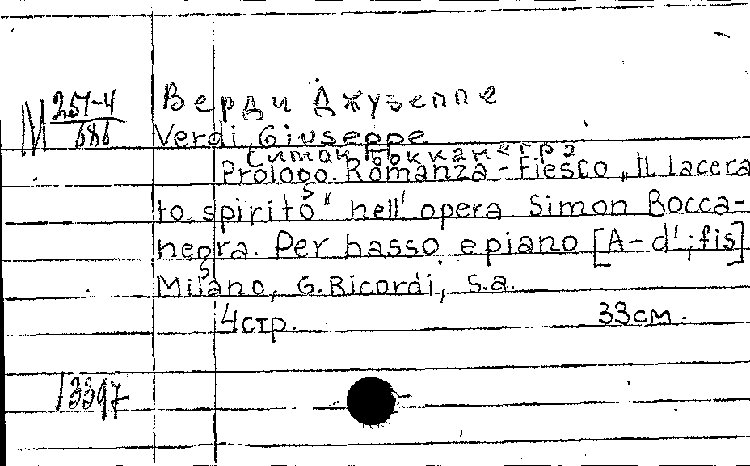 Верди Джузеппе
М 257-4/686
Verdi, Giuseppe
Симон Бокканегра
Prologo. Romanza - Fiesco „Il lacera
to spirito" nell' opera Simon Bocca-
negra. Per basso e piano [A-d¹; fis]
Milano, G. Ricordi, s.a.
4 стр. 33 см.
13397